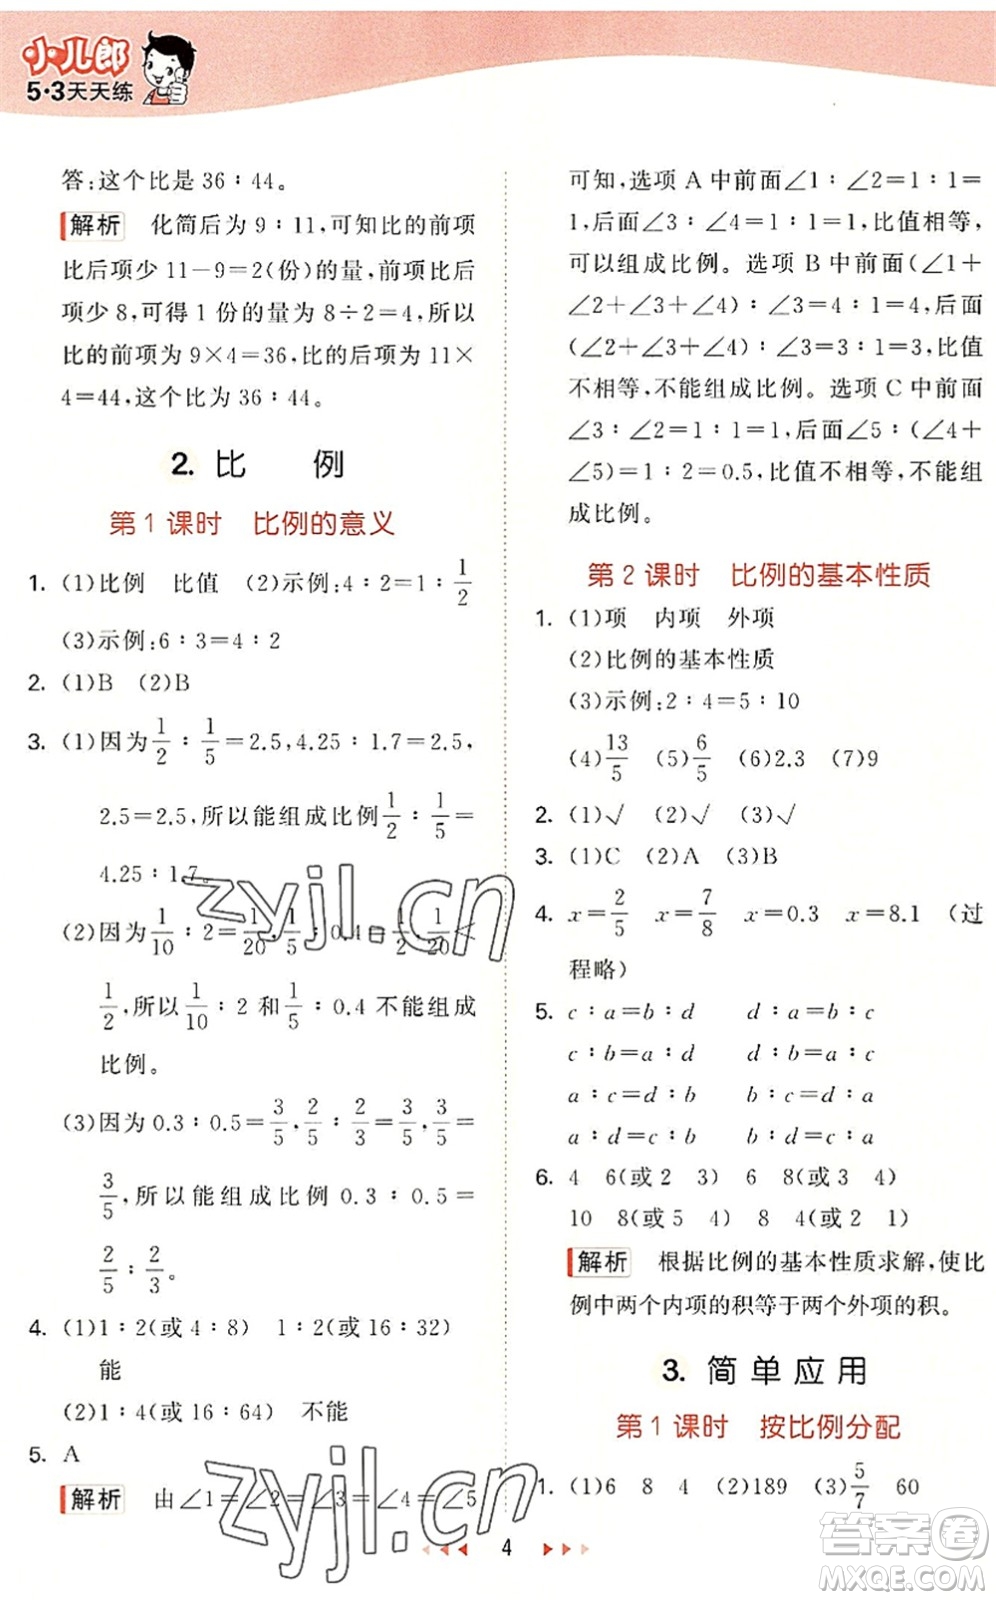 小儿郎
5·3天天练
答:这个比是36∶44。
解析 化简后为9∶11,可知比的前项
比后项少11－9＝2(份)的量,前项比后
项少8,可得1份的量为8÷2＝4,所以
比的前项为9×4＝36,比的后项为11×
4＝44,这个比为36∶44。
2. 比 例
第1课时 比例的意义
1. (1)比例 比值 (2)示例:4∶2＝1∶1/2
(3)示例:6∶3＝4∶2
2. (1)B (2)B
3. (1)因为1/2∶1/5＝2.5,4.25∶1.7＝2.5,
2.5＝2.5,所以能组成比例1/2∶1/5＝
4.25∶1.7。
(2)因为1/10∶2＝1/20,1/5∶0.4＝1/2,1/20<
1/2,所以1/10∶2和1/5∶0.4不能组成
比例。
(3)因为0.3∶0.5＝3/5,2/5∶2/3＝3/5,3/5＝
3/5,所以能组成比例0.3∶0.5＝
2/5∶2/3。
4. (1)1∶2(或4∶8) 1∶2(或16∶32)
能
(2)1∶4(或16∶64) 不能
5. A
解析 由∠1＝∠2＝∠3＝∠4＝∠5
可知,选项A中前面∠1∶∠2＝1∶1＝
1,后面∠3∶∠4＝1∶1＝1,比值相等,
可以组成比例。选项B中前面(∠1＋
∠2＋∠3＋∠4)∶∠3＝4∶1＝4,后面
(∠2＋∠3＋∠4)∶∠2＝3∶1＝3,比值
不相等,不能组成比例。选项C中前面
∠3∶∠2＝1∶1＝1,后面∠5∶(∠4＋
∠5)＝1∶2＝0.5,比值不相等,不能组
成比例。
第2课时 比例的基本性质
1. (1)项 内项 外项
(2)比例的基本性质
(3)示例:2∶4＝5∶10
(4)13/5 (5)6/5 (6)2.3 (7)9
2. (1)√ (2)√ (3)√
3. (1)C (2)A (3)B
4. x＝2/5 x＝7/8 x＝0.3 x＝8.1 (过
程略)
5. c∶a＝b∶d d∶a＝b∶c
c∶b＝a∶d d∶b＝a∶c
a∶c＝d∶b b∶c＝d∶a
a∶d＝c∶b b∶d＝c∶a
6. 4 6(或2 3) 6 8(或3 4)
10 8(或5 4) 8 4(或2 1)
解析 根据比例的基本性质求解,使比
例中两个内项的积等于两个外项的积。
3. 简单应用
第1课时 按比例分配
1. (1)6 8 4 (2)189 (3)5/7 60
4
zyjl.cn
zyjl.cn
答案圈
MXQE.COM